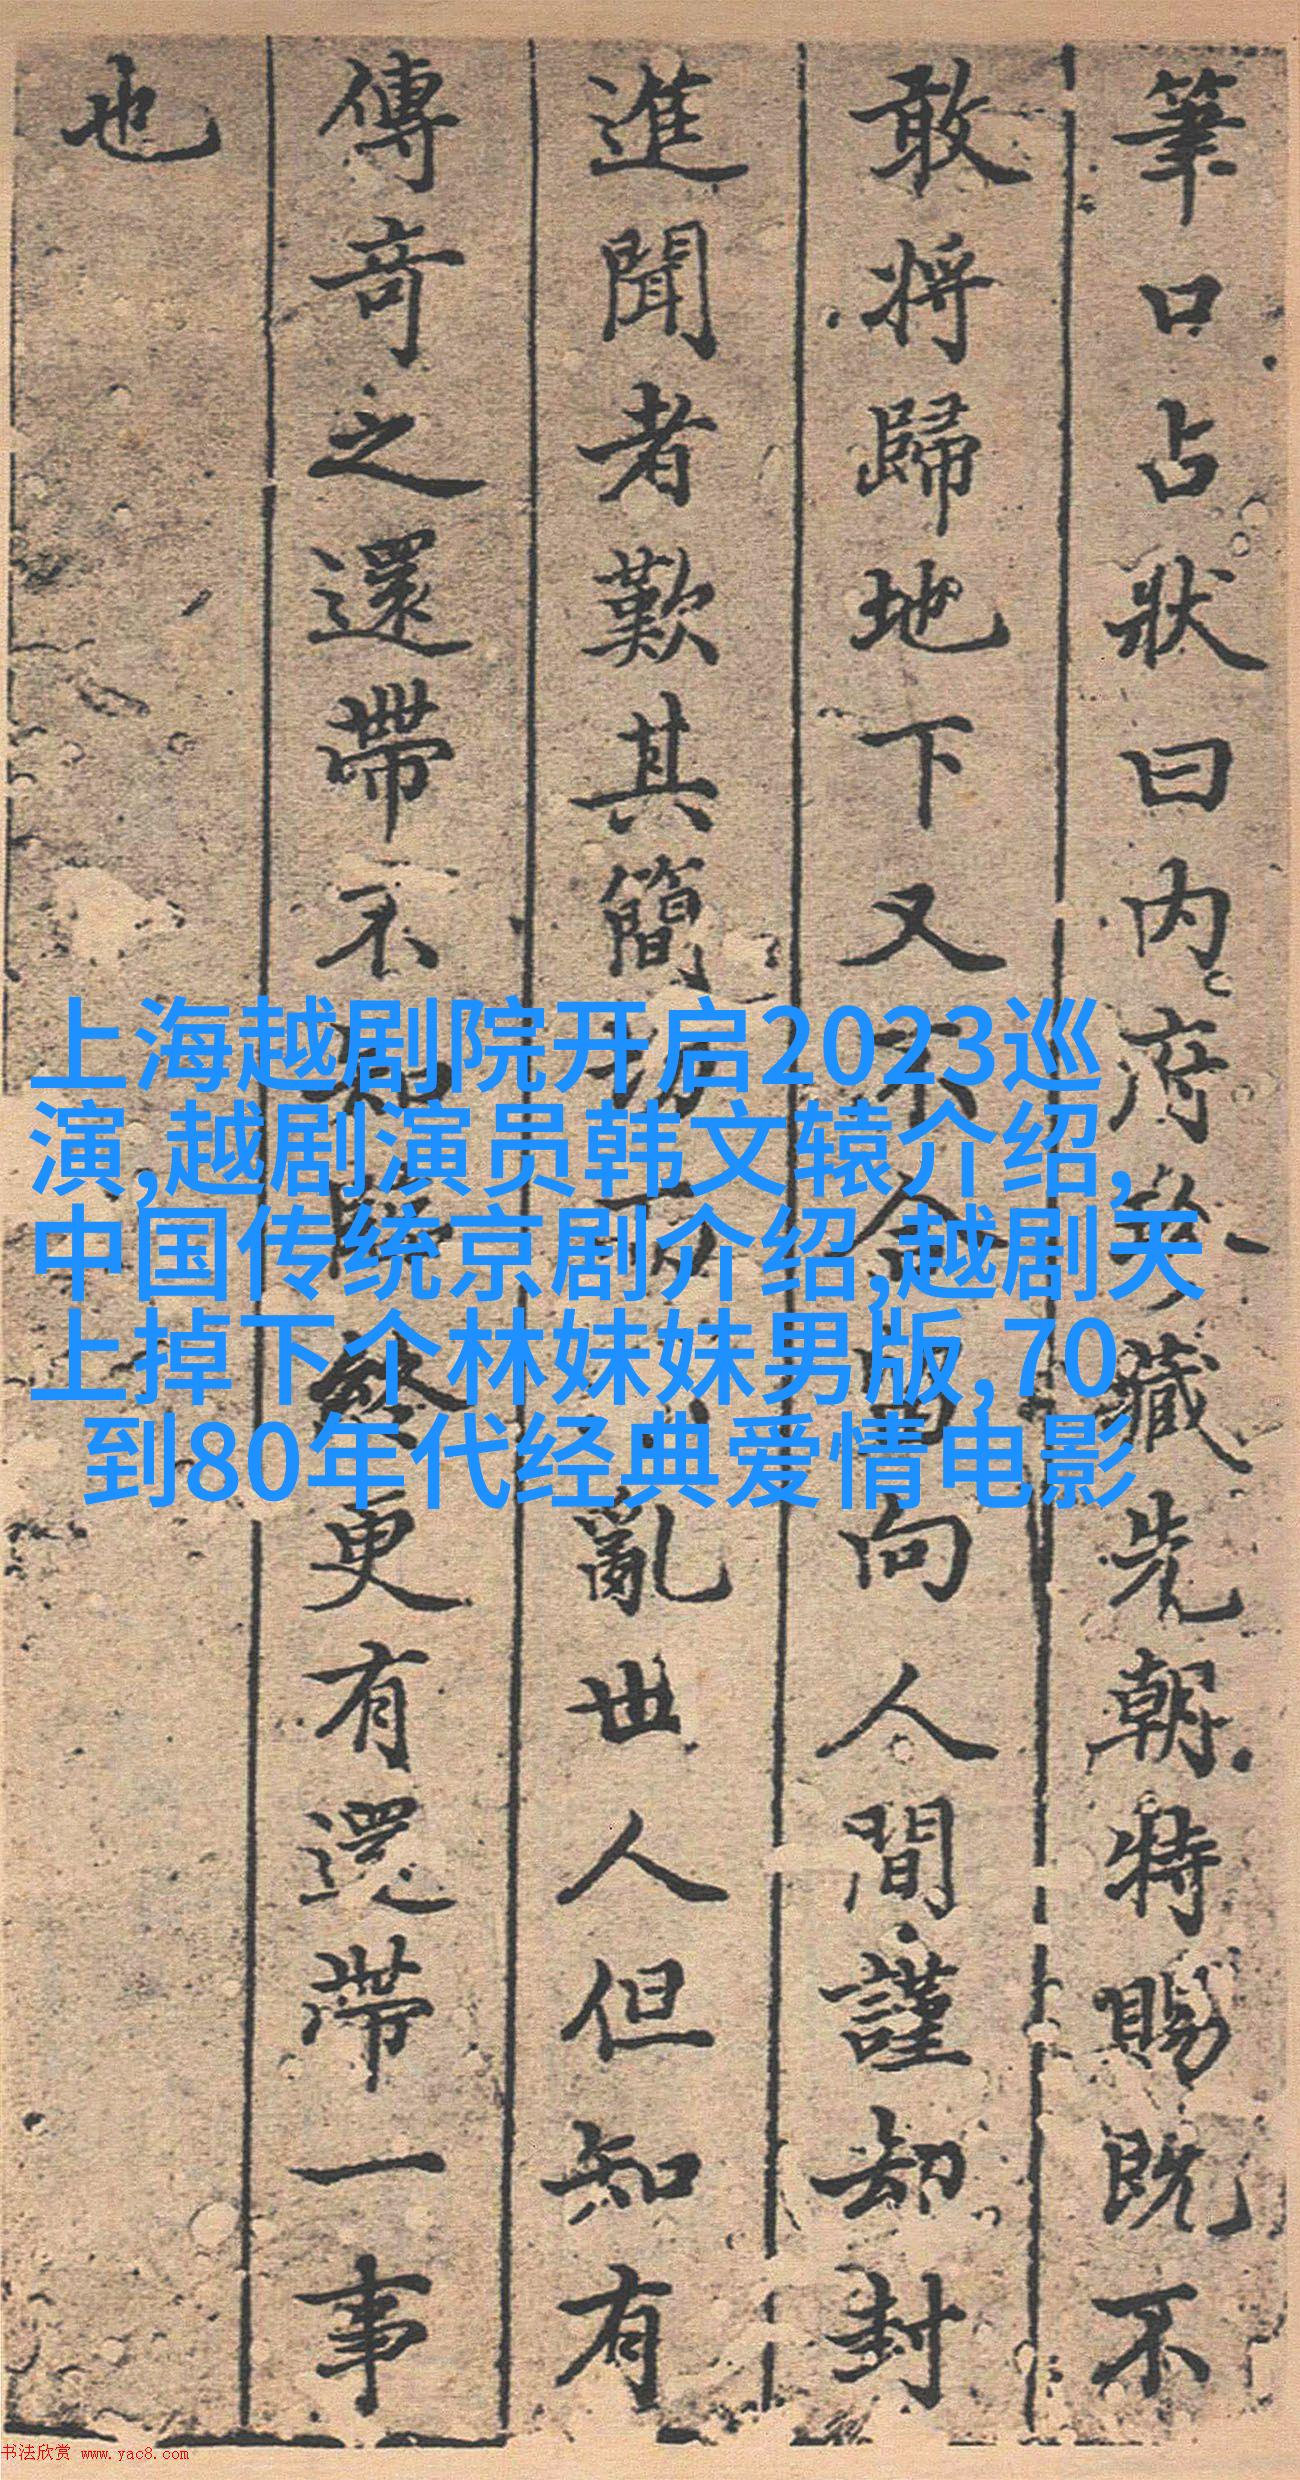 筆口占狀曰内府珍藏先朝特賜既不
敢將歸地下又不合留向人間謹却封
進聞者歎其簡切而不亂世人但知有
傳奇之還帶不知臨終更有還帶一事
也
上海越剧院开启2023巡
演,越剧演员韩文辕介绍,
中国传统京剧介绍,越剧天
上掉下个林妹妹男版,70
到80年代经典爱情电影
书法欣赏 www.yac8.com